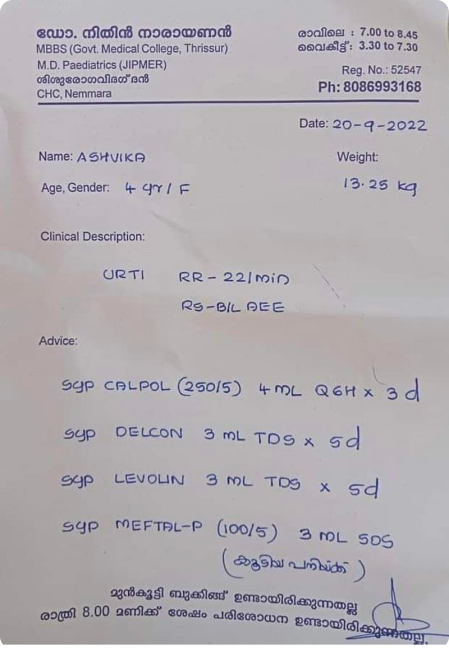 ഡോ. നിതിൻ നാരായണൻ
MBBS (Govt. Medical College, Thrissur)
M.D. Paediatrics (JIPMER)
ശിശുരോഗവിദഗ്ദൻ
CHC, Nemmara
രാവിലെ : 7.00 to 8.45
വൈകീട്ട്: 3.30 to 7.30
Reg. No.: 52547
Ph: 8086993168
Date: 20-9-2022
Name: ASHVIKA
Weight:
Age, Gender: 4 yr / F
13.25 kg
Clinical Description:
URTI RR - 22/min
RS-B/L AEE
Advice:
syp CALPOL (250/5) 4 mL Q6H x 3 d
syp DELCON 3 mL TDS x 5d
syp LEVOLIN 3 mL TDS x 5d
syp MEFTAL-P (100/5) 3 mL SOS
(കൂടിയ പനിയ്ക്ക്)
മുൻകൂട്ടി ബുക്കിങ്ങ് ഉണ്ടായിരിക്കുന്നതല്ല
രാത്രി 8.00 മണിക്ക് ശേഷം പരിശോധന ഉണ്ടായിരിക്കുന്നതല്ല.